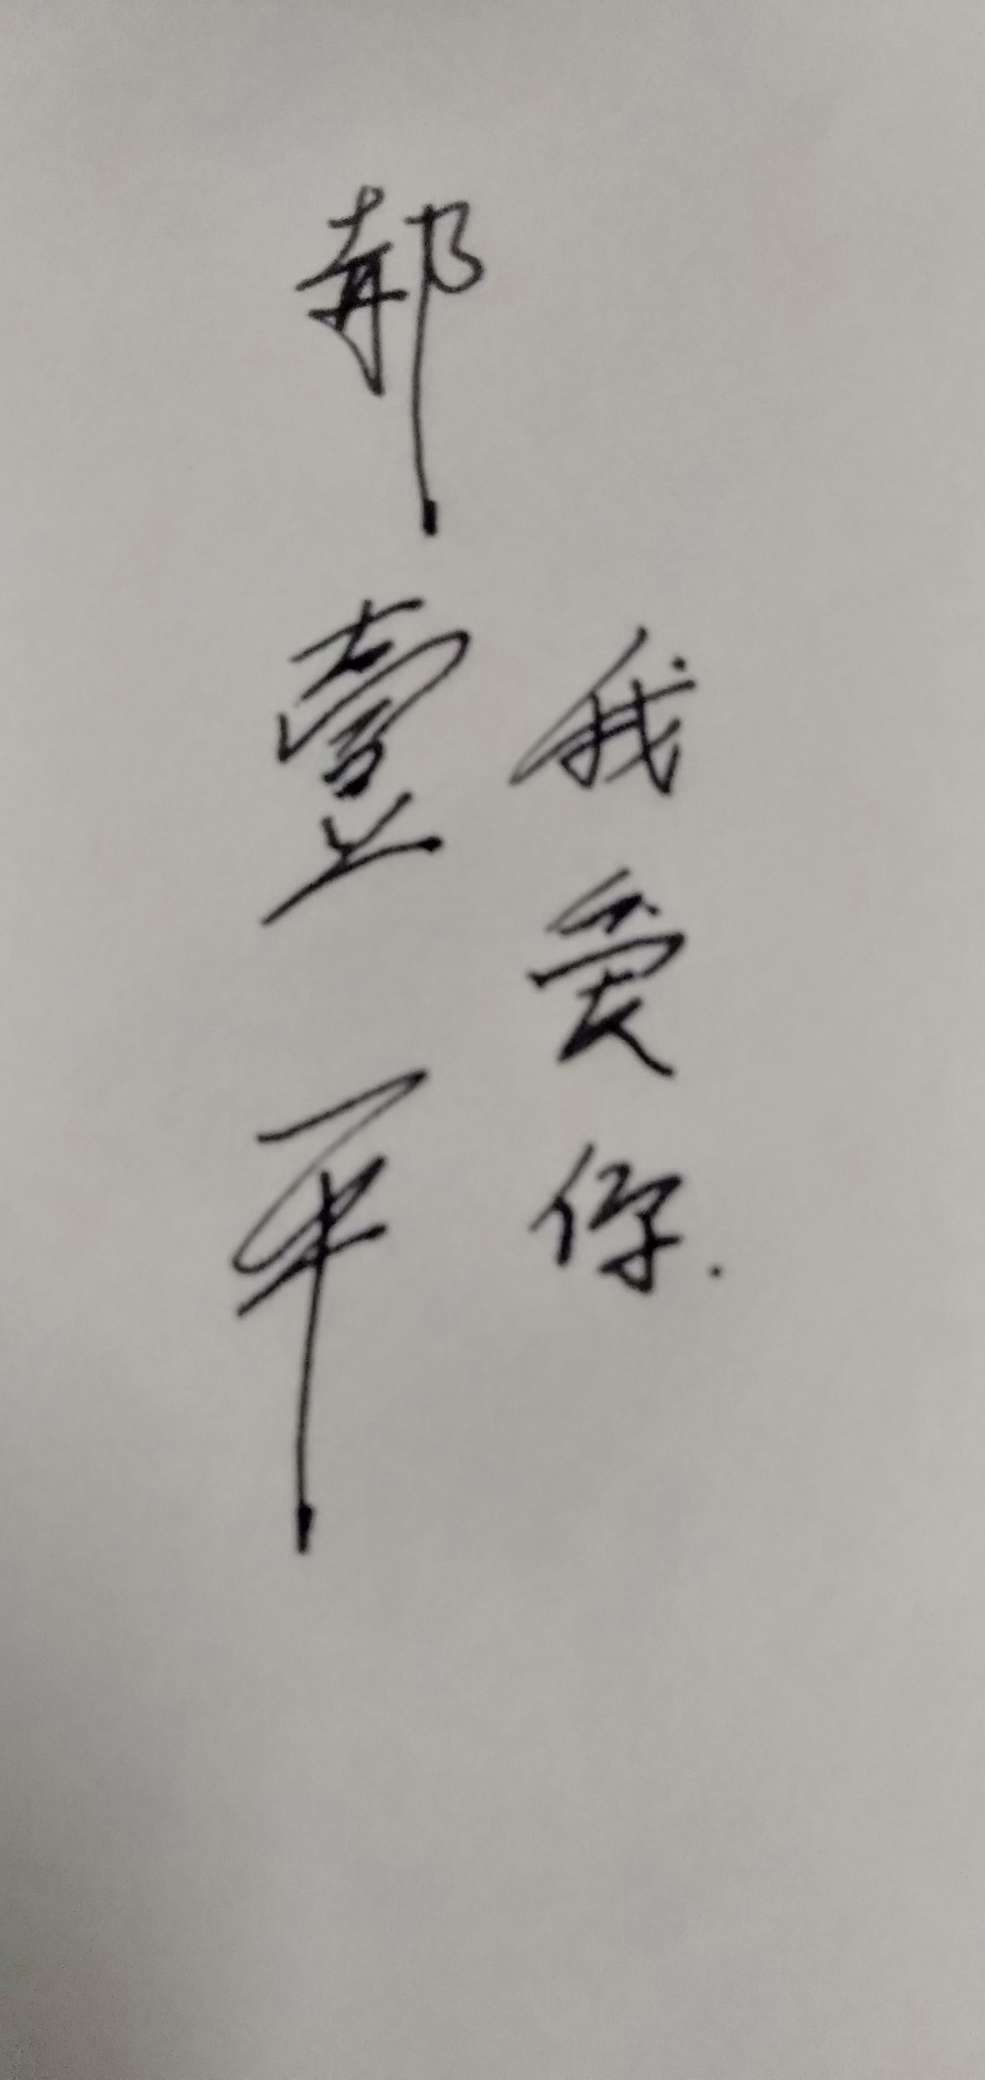 郝壹平
我爱你.